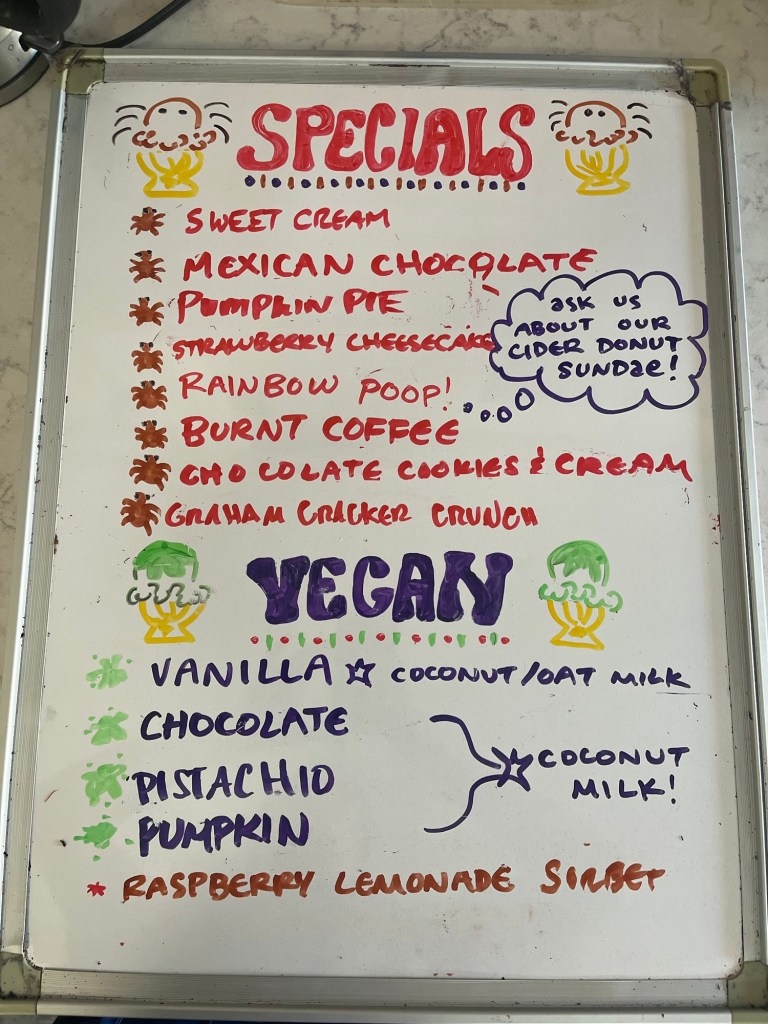 SPECIALS
SWEET CREAM
MEXICAN CHOCOLATE
PUMPKIN PIE
STRAWBERRY CHEESECAKE
ask us
ABOUT OUR
CIDER DONUT
SUNDae!
RAINBOW POOP!
BURNT COFFEE
CHOCOLATE COOKIES & CREAM
GRAHAM CRACKER CRUNCH
VEGAN
VANILLA ☆ COCONUT/OAT MILK
CHOCOLATE
PISTACHIO
PUMPKIN
☆ COCONUT
MILK!
* RASPBERRY LEMONADE SIRBET